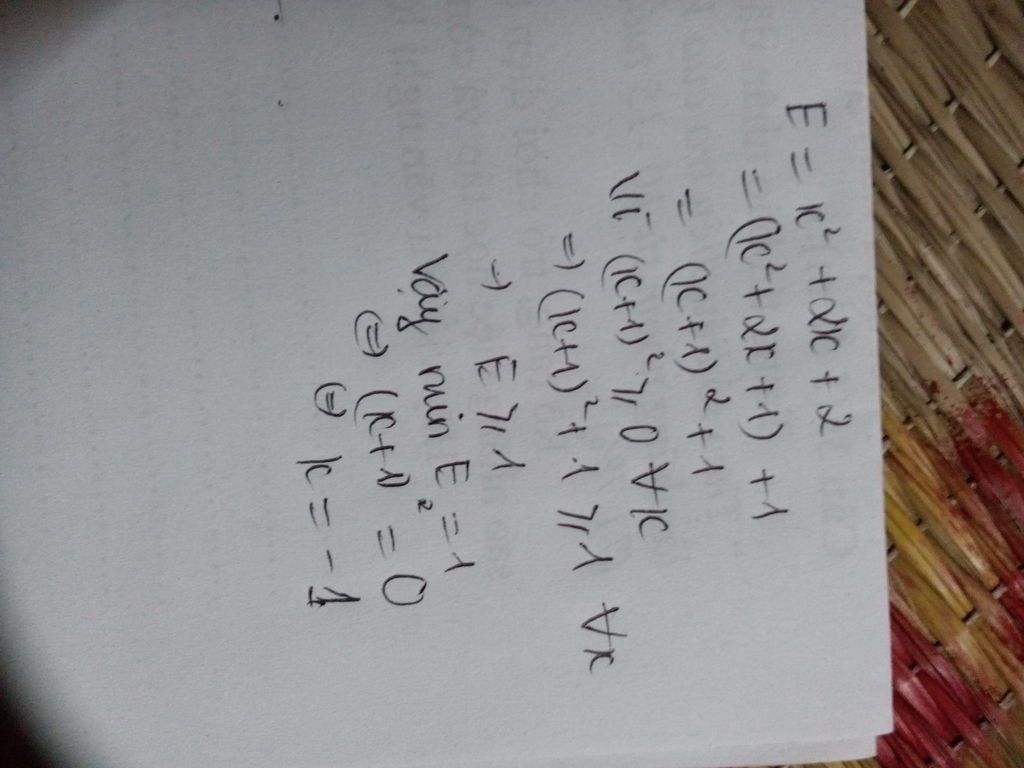 E = x² + 2x + 2
= (x² + 2x + 1) + 1
= (x+1)² + 1
Vì (x+1)² ≥ 0 ∀x
=) (x+1)² + 1 ≥ 1 ∀x
=) E ≥ 1
Vậy min E = 1
(=) (x+1)² = 0
(=) x = -1